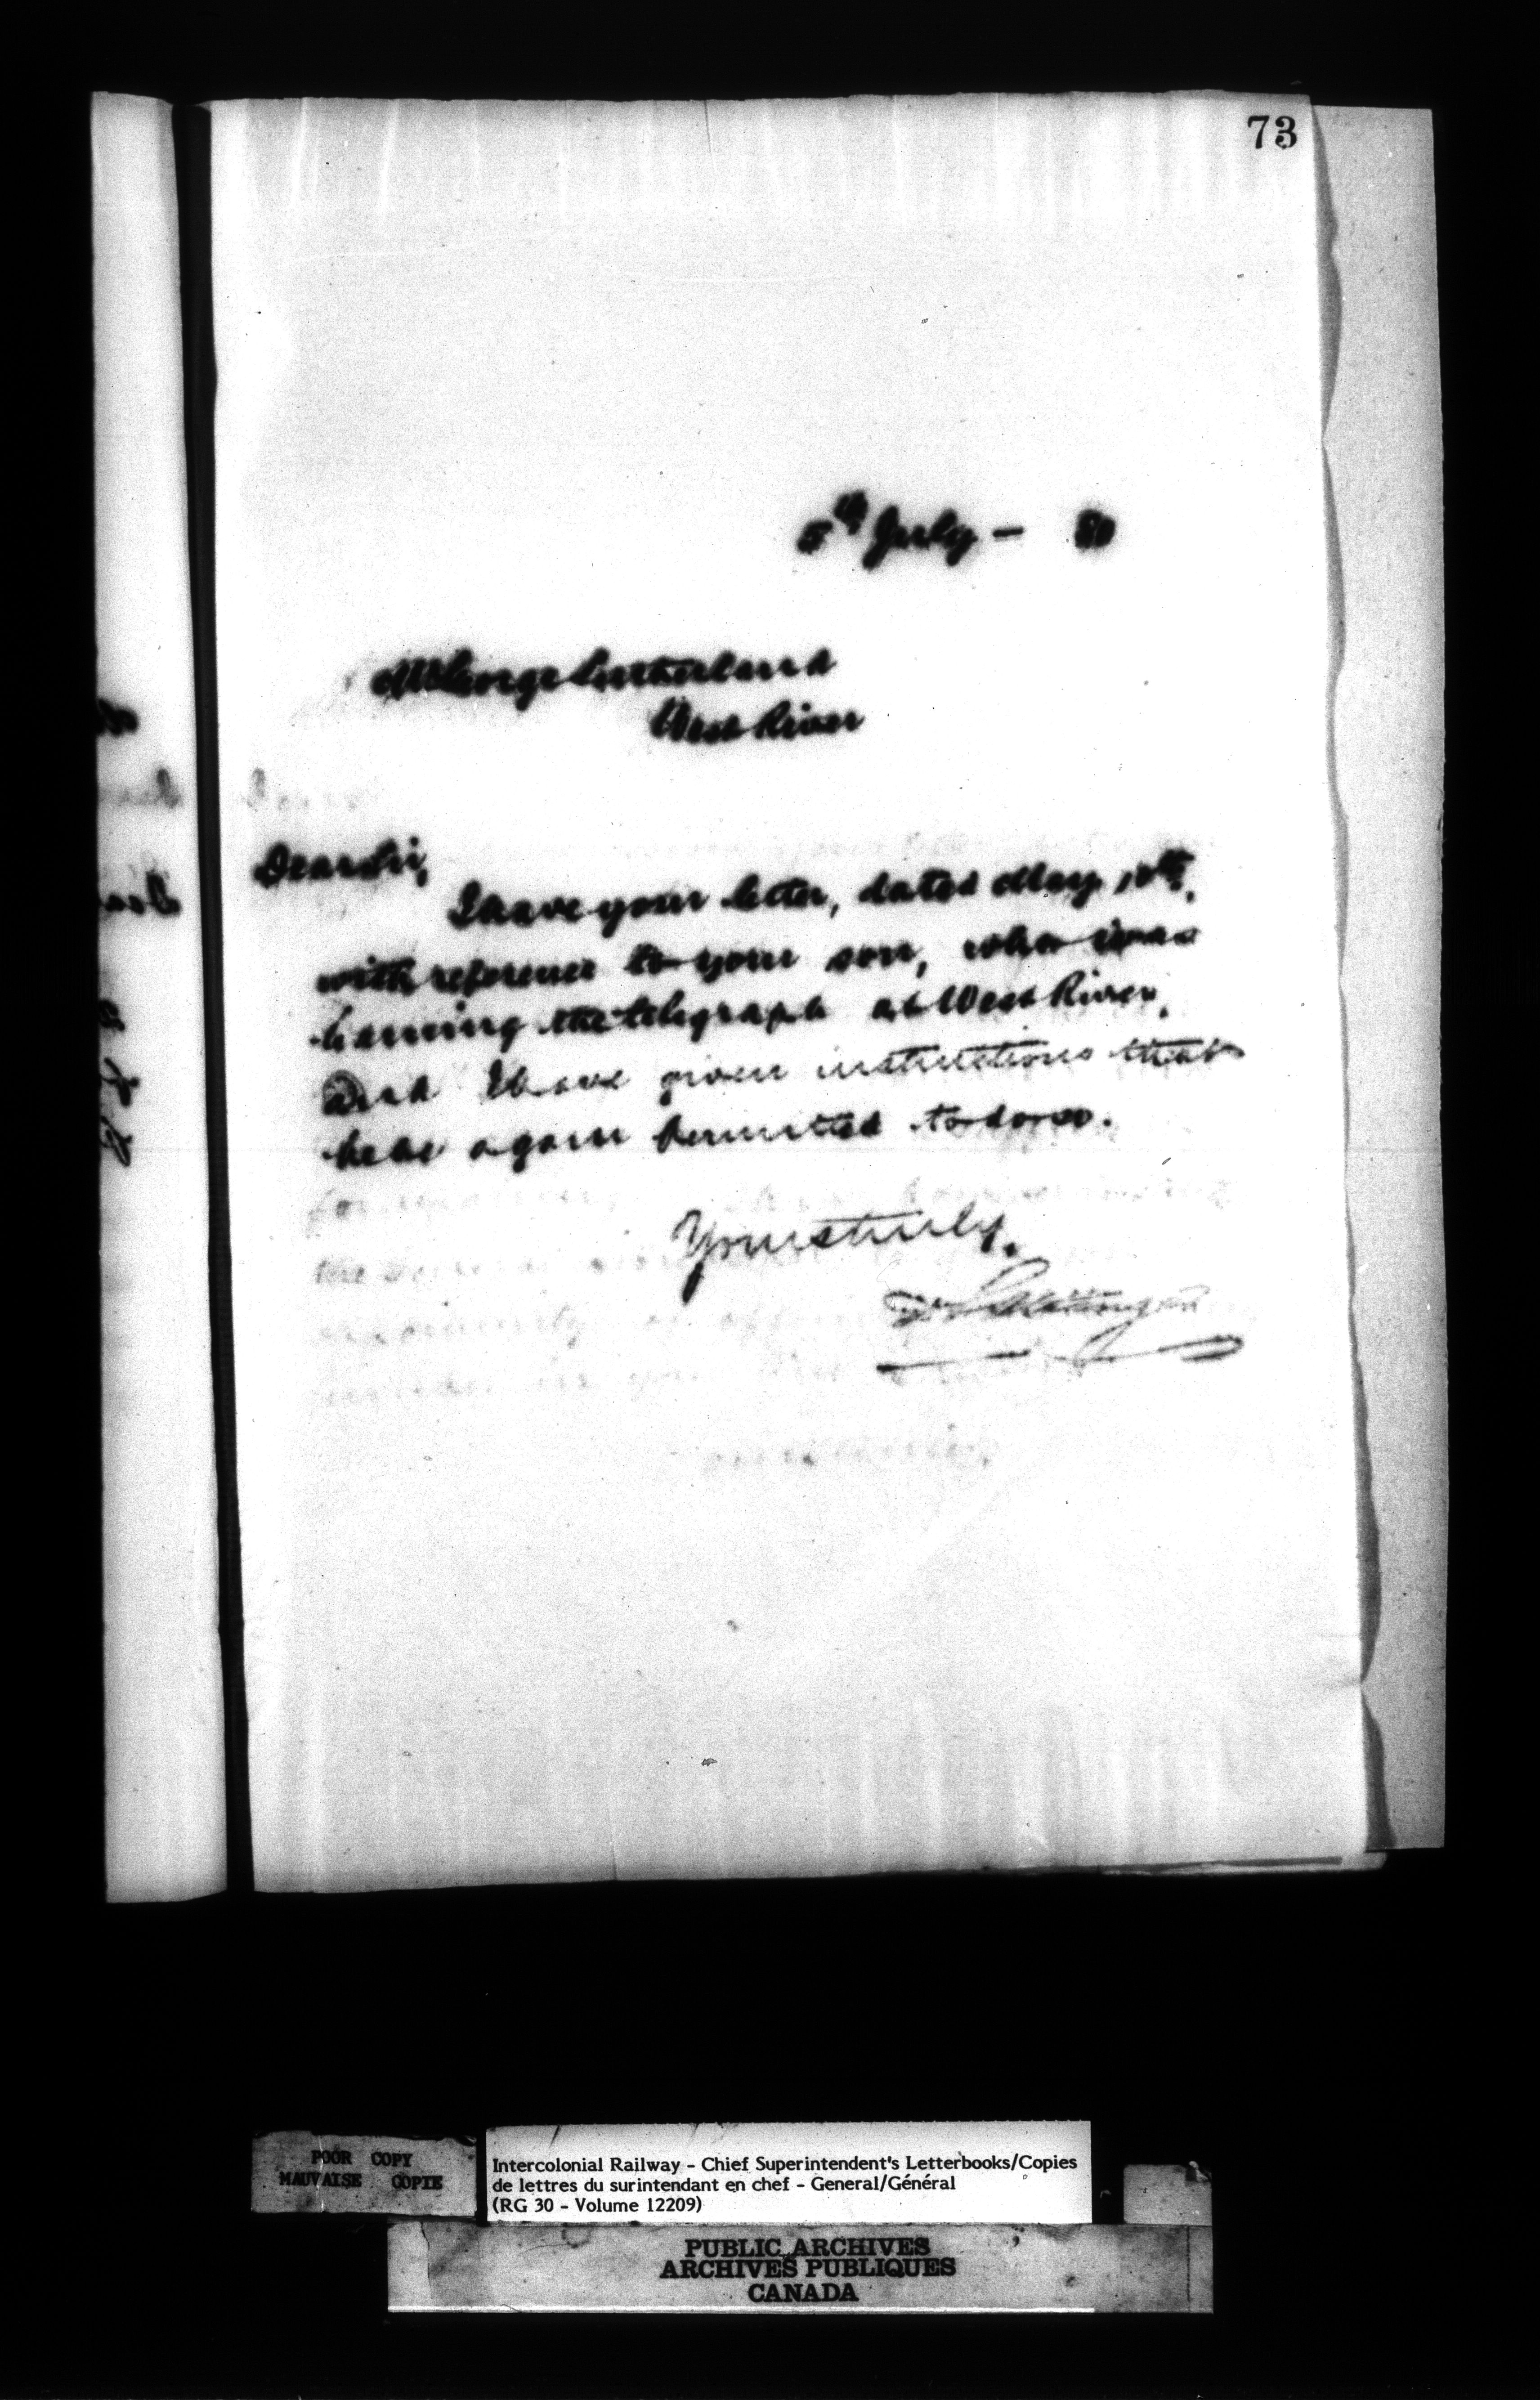 73
5th July - 80
Mr George Sutherland
West River
Dear Sir,
I have your letter, dated May
with reference to your son, who was
learning the telegraph at West River,
and I have given instructions that
he be again permitted to do so.
Yours truly,
D Pottinger
POOR COPY
MAUVAISE COPIE
Intercolonial Railway - Chief Superintendent's Letterbooks/Copies
de lettres du surintendant en chef - General/Général
(RG 30 - Volume 12209)
PUBLIC ARCHIVES
ARCHIVES PUBLIQUES
CANADA